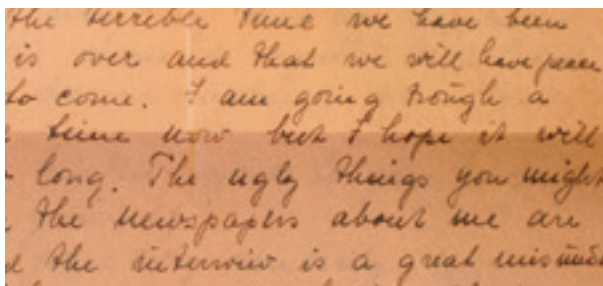 the terrible time we have been
is over and that we will have peace
to come. I am going trough a
time now but I hope it will
long. The ugly things you might
the newspapers about me are
the interwiw is a great misunde